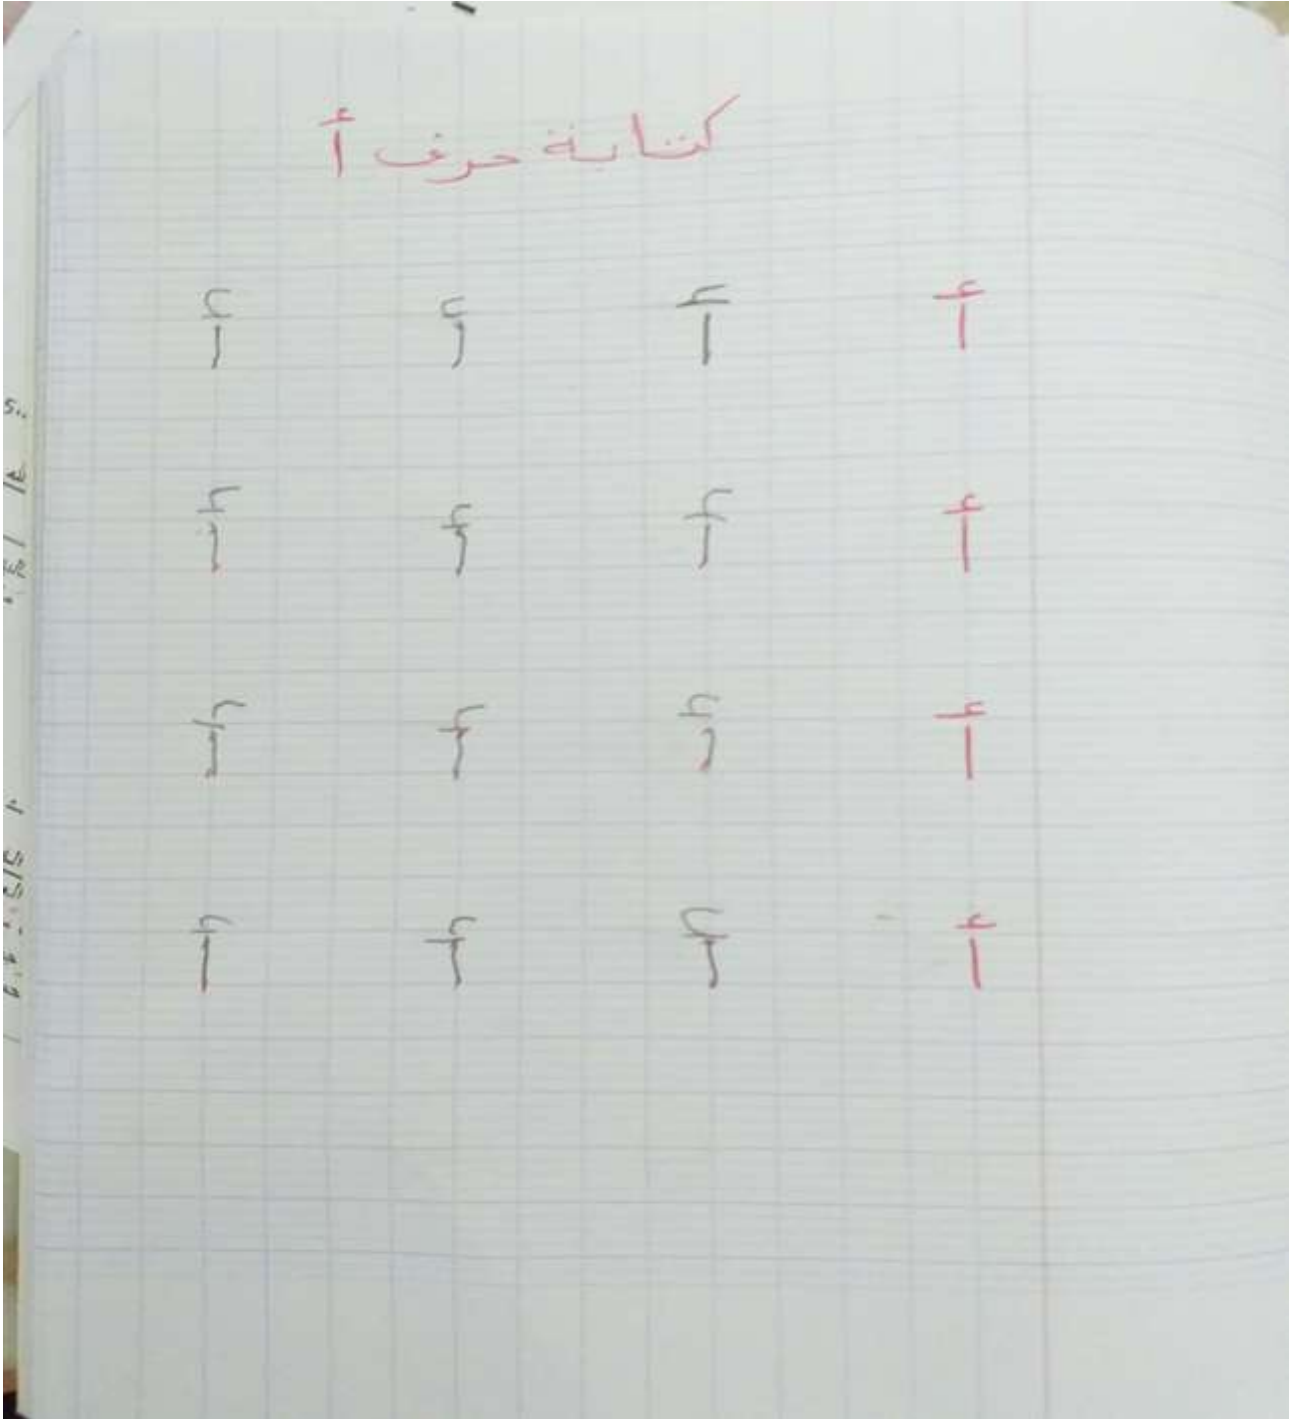 كتابة حرف أ
أ أ أ أ
أ أ أ أ
أ أ أ أ
أ أ أ أ